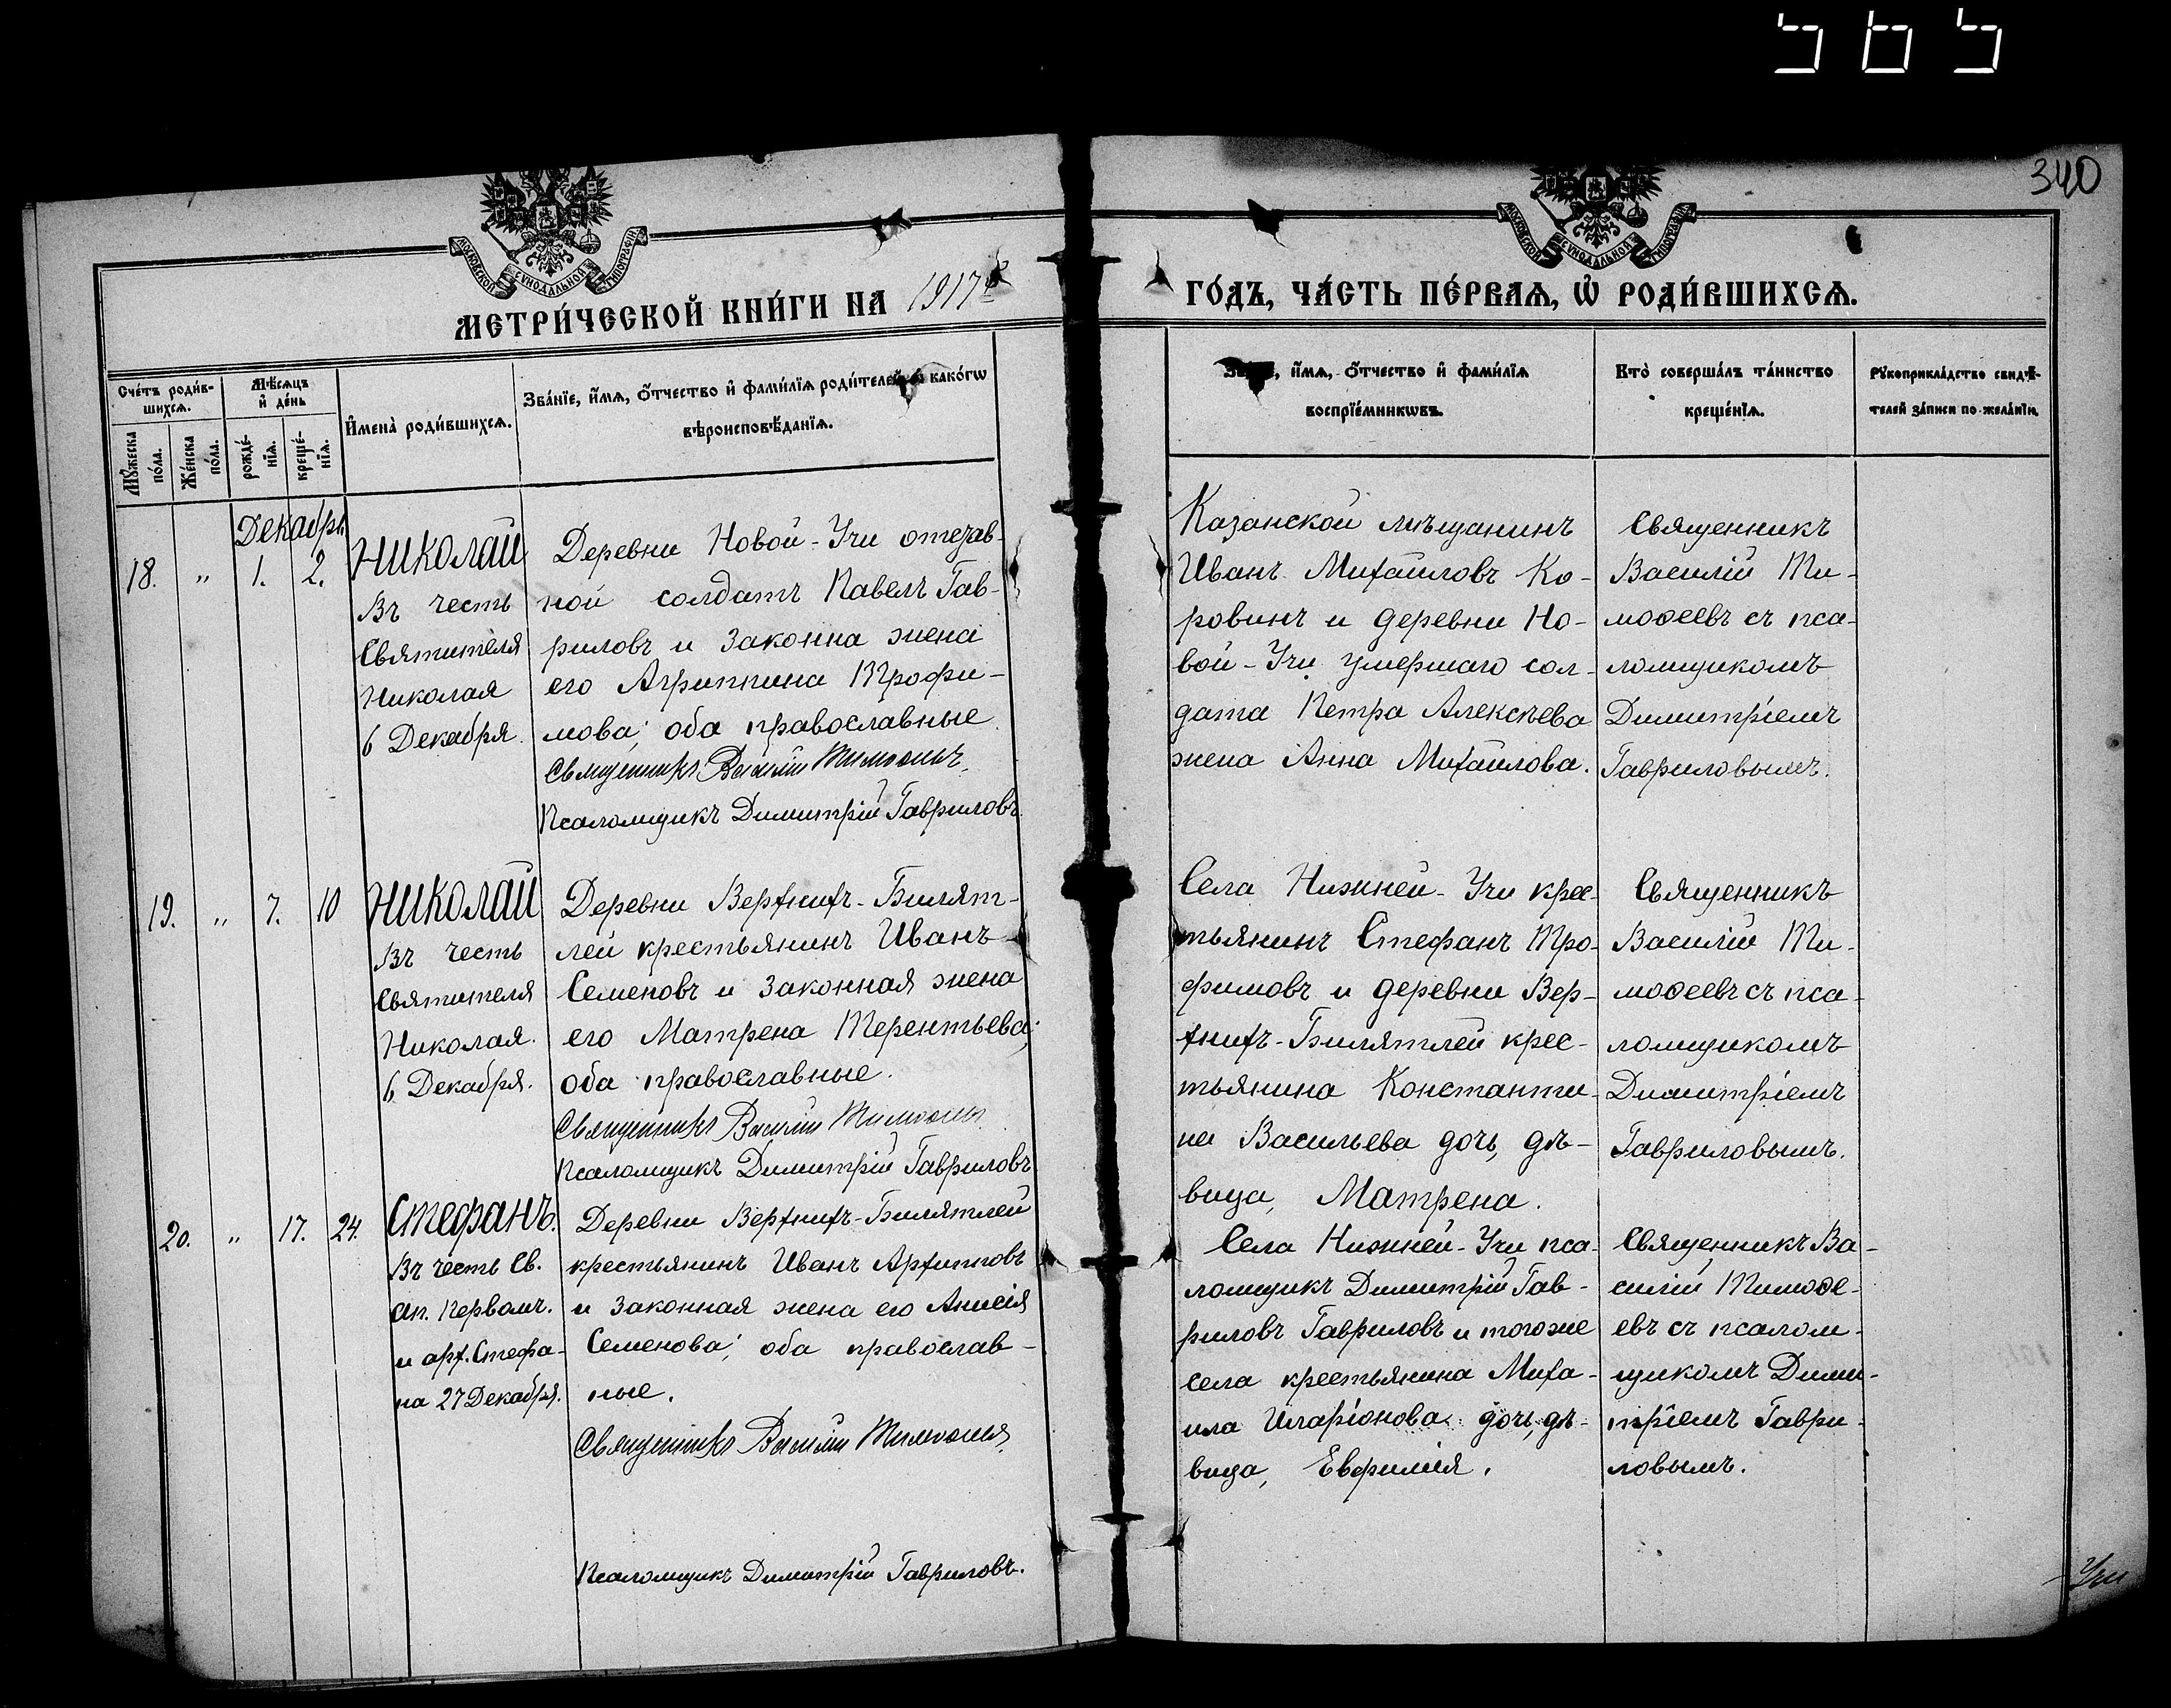 565
340
МОСКОВСКОЙ СѴНОДАЛЬНОЙ ТИПОГРАФІИ
МОСКОВСКОЙ СѴНОДАЛЬНОЙ ТИПОГРАФІИ
МЕТРИ́ЧЕСКОЙ КНИ́ГИ НА 1917 г
ГО́ДЪ, ЧА́СТЬ ПЕ́РВАѦ, Ѡ҆ РОДИ́ВШИХСѦ.
Сче́тъ роди́в-
шихсѧ.
Мꙋ́жеска
по́ла.
Же́нска
по́ла.
Мѣ́сѧцъ
и҆ де́нь
рожде́-
нїѧ.
креще́-
нїѧ.
И҆мена̀ роди́вшихсѧ.
Зва́нїе, и҆́мѧ, ѻ҆́тчество и҆ фами́лїѧ роди́телей, и҆ како́гѡ
вѣроисповѣ́данїѧ.
и҆́мѧ, ѻ҆́тчество и҆ фами́лїѧ
воспрїе́мникѡвъ.
Кто̀ соверша́лъ та́инство
креще́нїѧ.
Рꙋкоприкла́дство свидѣ́-
телей за́писи по жела́нїю.
Декабрь
18. " 1. 2.
Николай
Въ честь
Святителя
Николая
6 Декабря.
Деревни Новой-Учи отстав-
ной солдатъ Павелъ Гав-
риловъ и законна жена
его Агриппина Трофи-
мова; оба православные.
Священникъ Василій Тимоѳеевъ.
Псаломщикъ Димитрій Гавриловъ.
Казанской мѣщанинъ
Иванъ Михайловъ Ко-
ровинъ и деревни Но-
вой-Учи умершаго сол-
дата Петра Алексѣева
жена Анна Михайлова.
Священникъ
Василій Ти-
моѳеевъ съ пса-
ломщикомъ
Димитріемъ
Гавриловымъ.
19. " 7. 10
Николай
Въ честь
Святителя
Николая.
6 Декабря.
Деревни Верхнихъ-Билят-
лей крестьянинъ Иванъ
Семеновъ и законная жена
его Матрена Терентьева;
оба православные.
Священникъ Василій Тимоѳеевъ
Псаломщикъ Димитрій Гавриловъ
Села Нижней-Учи крес-
тьянинъ Стефанъ Тро-
фимовъ и деревни Вер-
хнихъ-Билятлей крес-
тьянина Константи-
на Васильева дочь, дѣ-
вица, Матрена.
Священникъ
Василій Ти-
моѳеевъ съ пса-
ломщикомъ
Димитріемъ
Гавриловымъ.
20. " 17. 24.
Стефанъ.
Въ честь Св.
ап. Первом.
и арх. Стефа-
на 27 Декабря.
Деревни Верхнихъ-Билятлей
крестьянинъ Иванъ Архиповъ
и законная жена его Анисія
Семенова; оба православ-
ные.
Священникъ Василій Тимоѳеевъ
Псаломщикъ Димитрій Гавриловъ.
Села Нижней-Учи пса-
ломщикъ Димитрій Гав-
риловъ Гавриловъ и тогоже
села крестьянина Миха-
ила Иларіонова дочь, дѣ-
вица, Евфимія.
Священникъ Ва-
силій Тимоѳе-
евъ съ псалом-
щикомъ Дими-
тріемъ Гаври-
ловымъ.
Учи